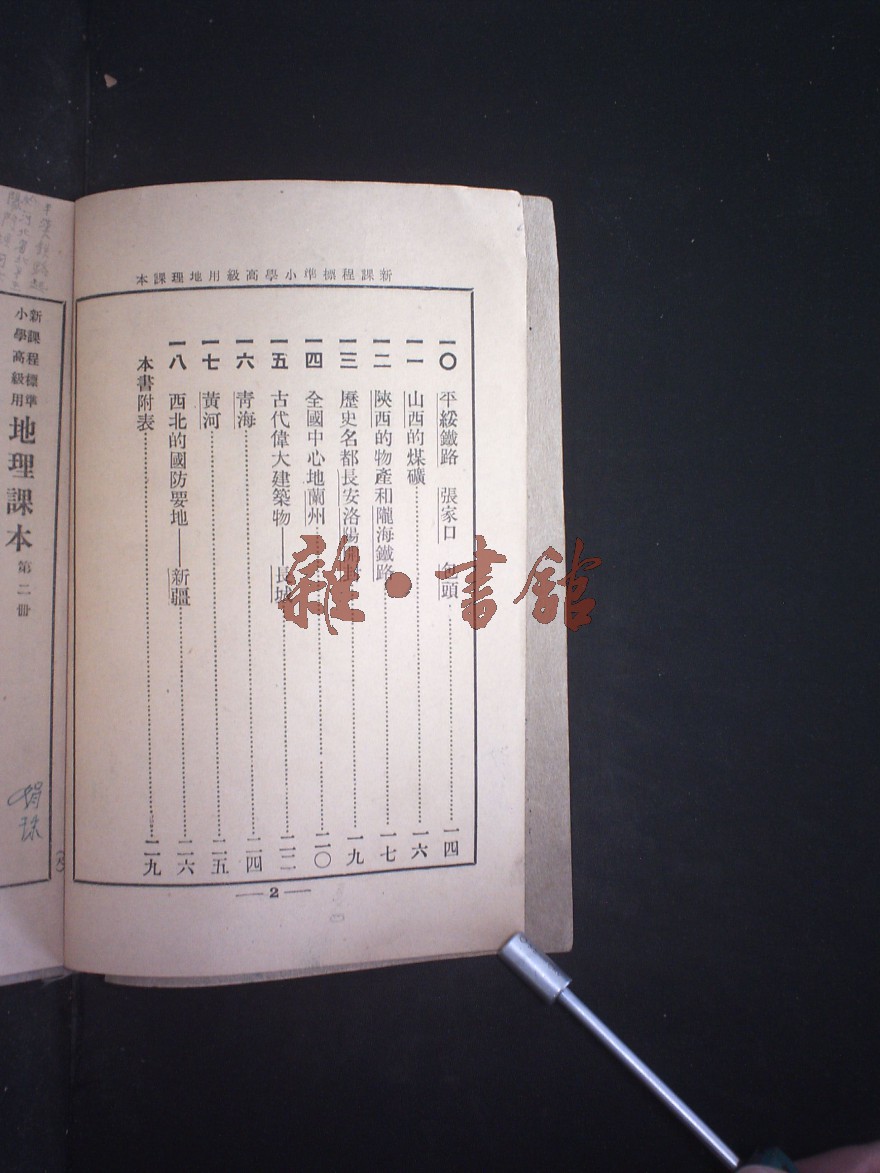 新課程標準小學高級用地理課本
一〇 平綏鐵路 張家口 包頭……一四
一一 山西的煤礦……一六
一二 陝西的物產和隴海鐵路……一七
一三 歷史名都長安洛陽……一九
一四 全國中心地蘭州……二〇
一五 古代偉大建築物——長城……二二
一六 青海……二四
一七 黃河……二五
一八 西北的國防要地——新疆……二六
本書附表……二九
—2—
新課程標準
小學高級用
地理課本 第二冊
雜·書館